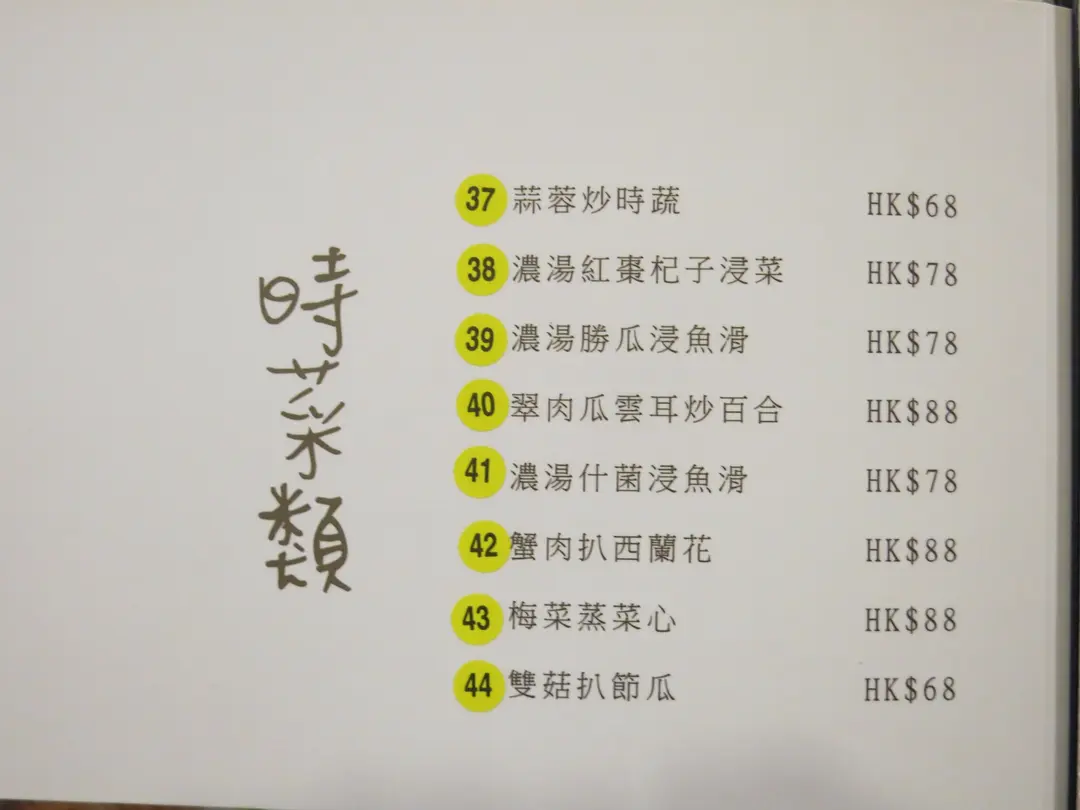 時菜類
37 蒜蓉炒時蔬 HK$68
38 濃湯紅棗杞子浸菜 HK$78
39 濃湯勝瓜浸魚滑 HK$78
40 翠肉瓜雲耳炒百合 HK$88
41 濃湯什菌浸魚滑 HK$78
42 蟹肉扒西蘭花 HK$88
43 梅菜蒸菜心 HK$88
44 雙菇扒節瓜 HK$68